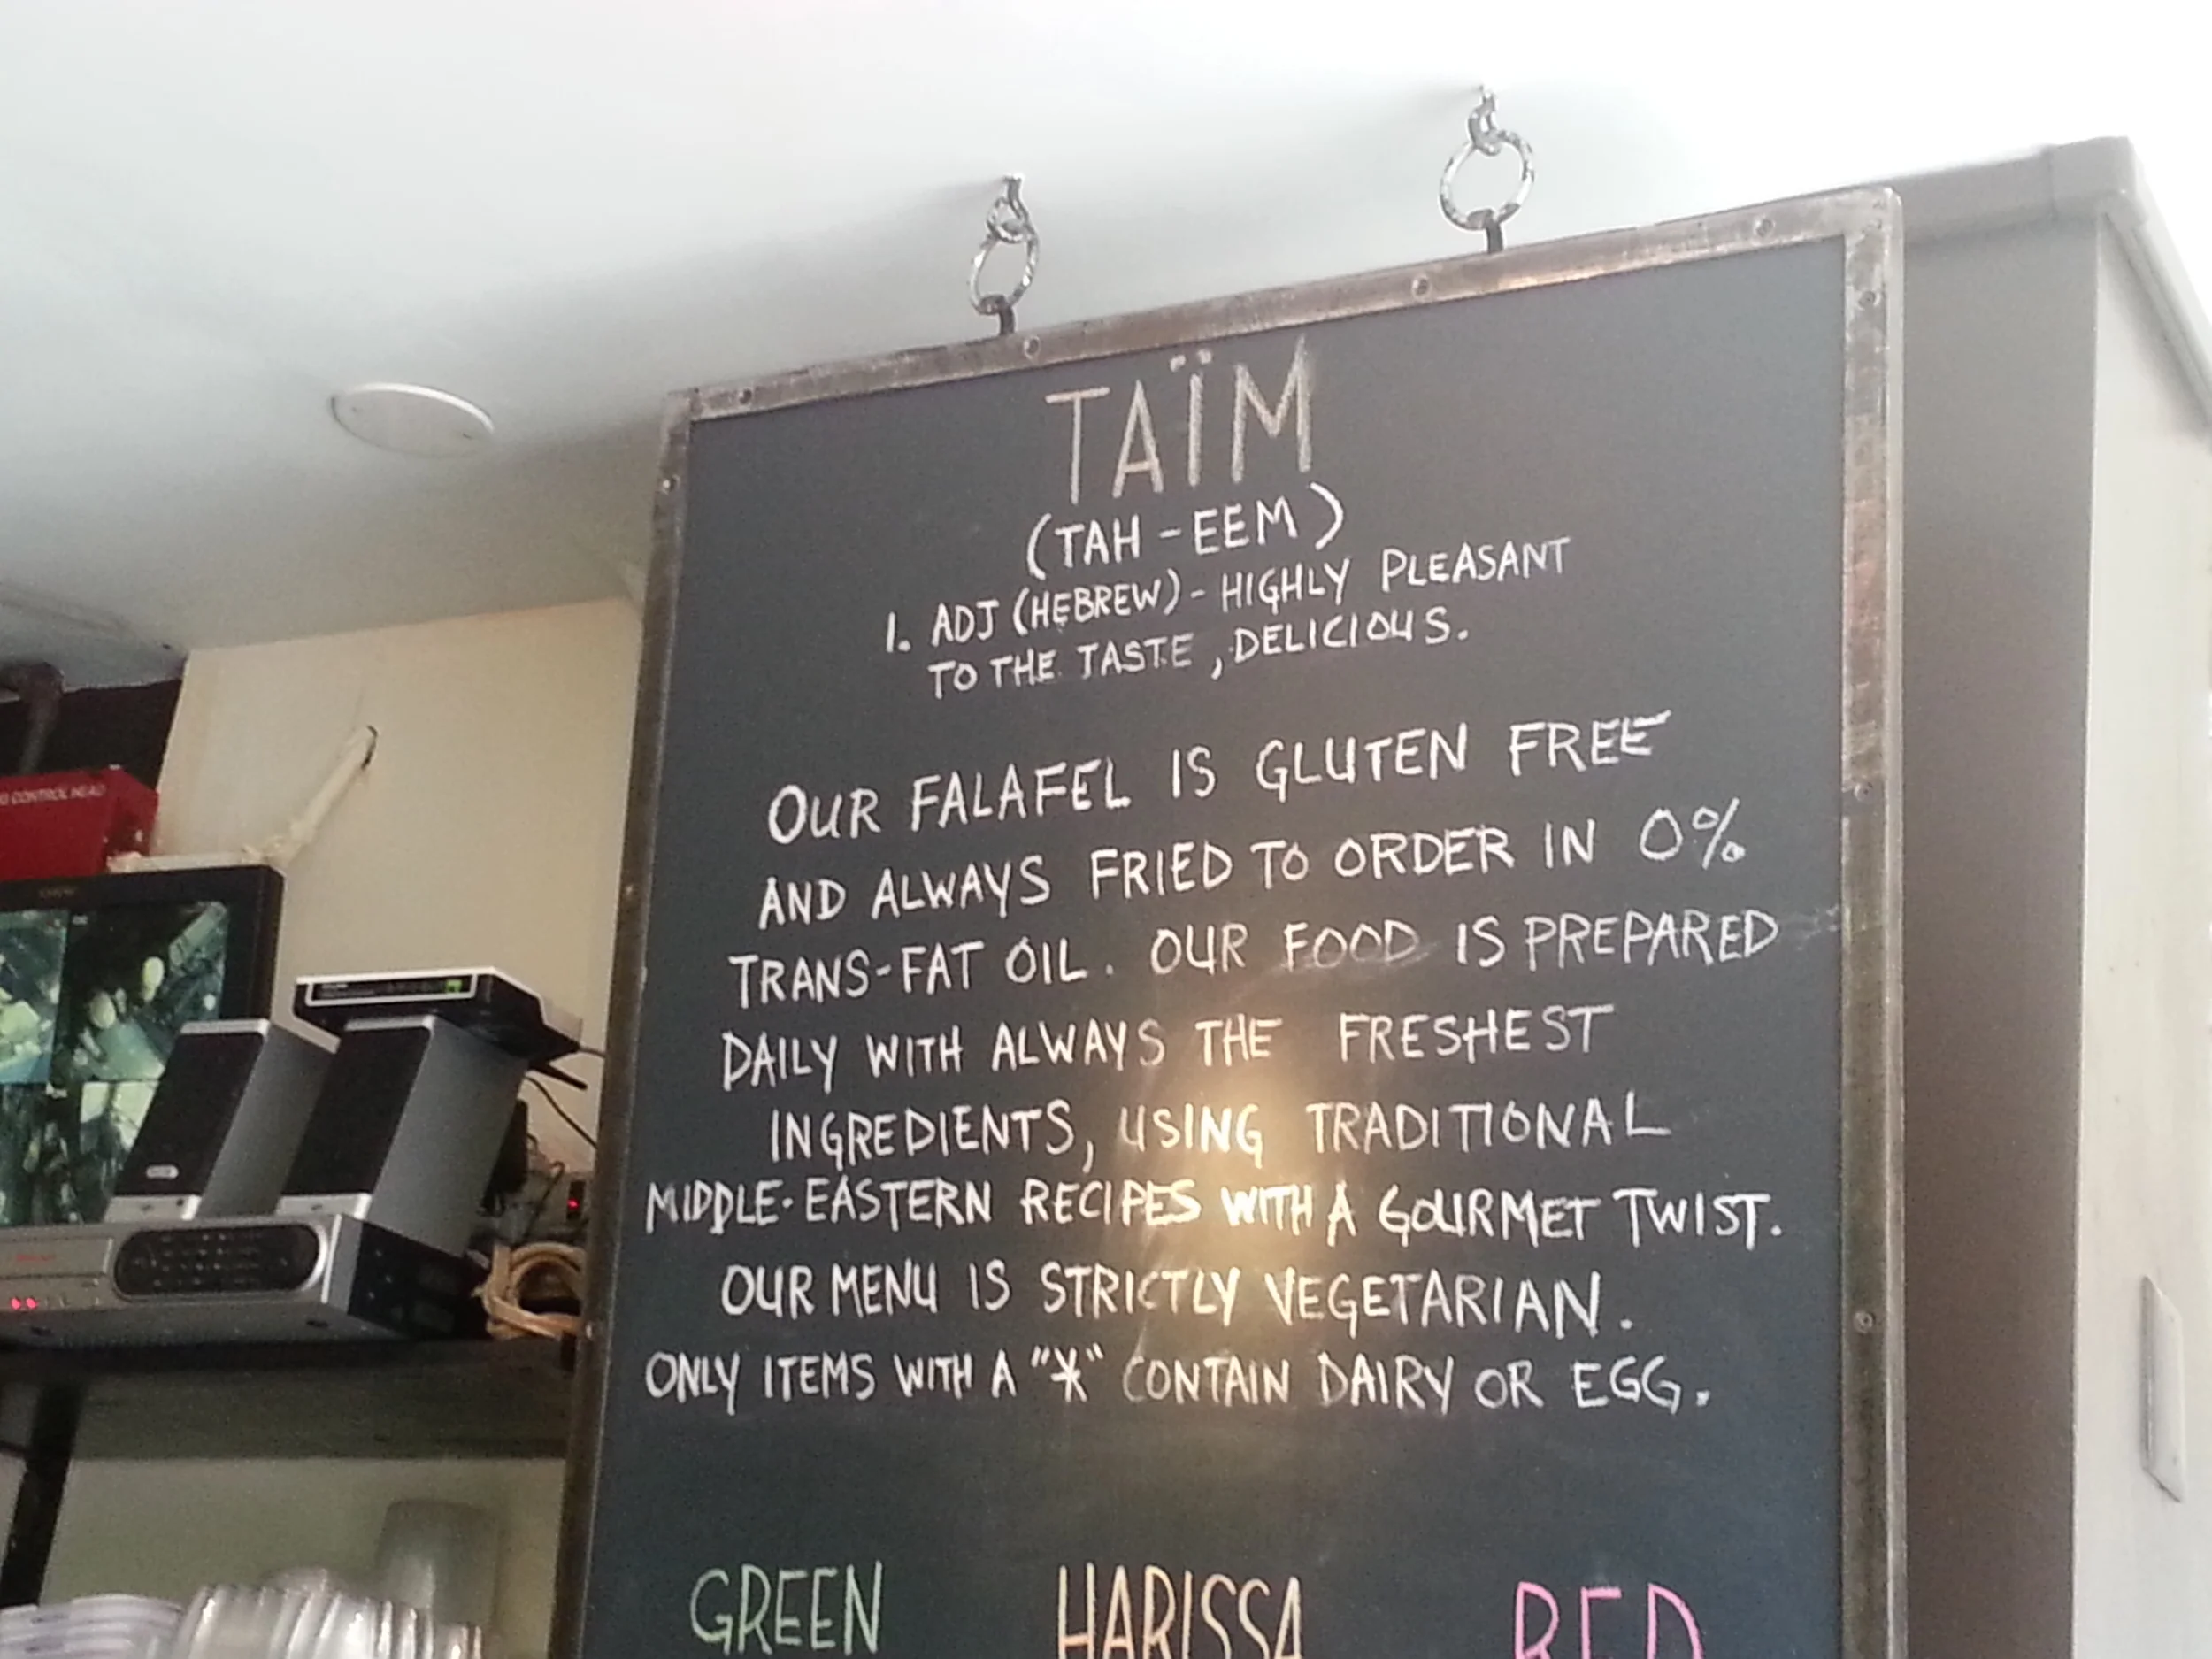 TAÏM
(TAH-EEM)
1. ADJ (HEBREW) - HIGHLY PLEASANT
TO THE TASTE, DELICIOUS.
OUR FALAFEL IS GLUTEN FREE
AND ALWAYS FRIED TO ORDER IN 0%
TRANS-FAT OIL. OUR FOOD IS PREPARED
DAILY WITH ALWAYS THE FRESHEST
INGREDIENTS, USING TRADITIONAL
MIDDLE-EASTERN RECIPES WITH A GOURMET TWIST.
OUR MENU IS STRICTLY VEGETARIAN.
ONLY ITEMS WITH A "*" CONTAIN DAIRY OR EGG.
GREEN HARISSA RED
CONTROL HEAD